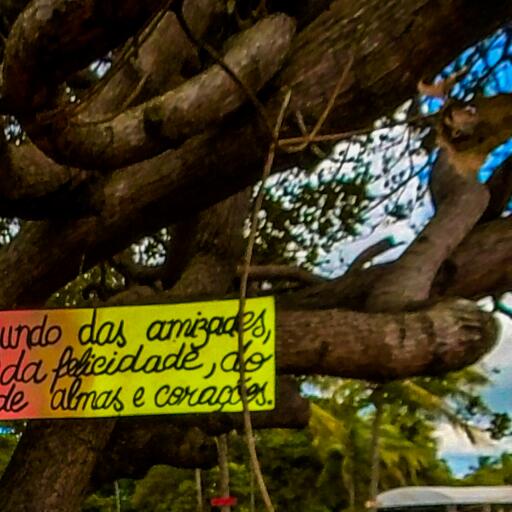 undo das amizades,
da felicidade, do
de almas e corações.